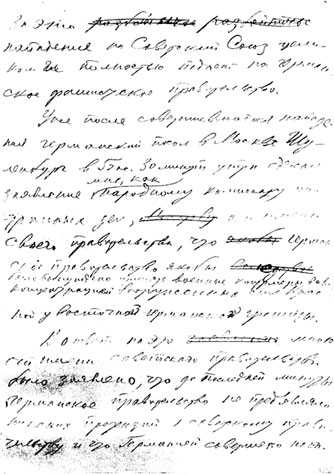 за это разбойничье разбойничье
нападение на Советский Союз цели-
ком и полностью падает на герман-
ское фашистское правительство.
Уже после совершившегося нападе-
ния германский посол в Москве Шу-
ленбург в 5 час. 30 минут утра сделал
мне, как
заявление народному комиссару ино-
странных дел, от имени
своего правительства, что герман-
ское правительство
восточной германской границы.
В ответ на это мною
от имени советского правительства
было заявлено, что до последней минуты
германское правительство не предъявляло
никаких претензий к советскому прави-
тельству и что Германия совершила напа-